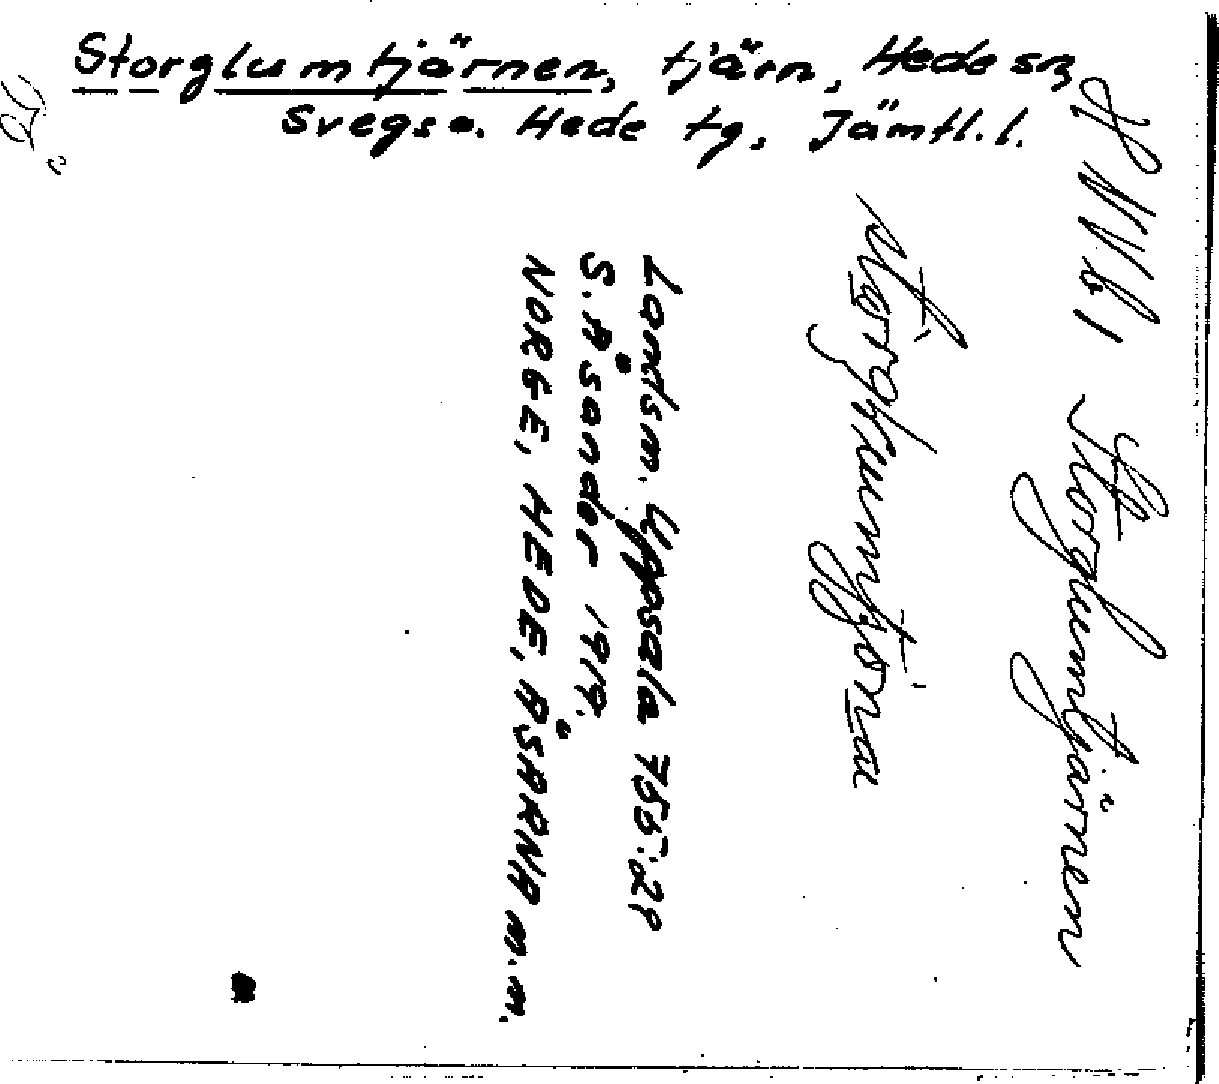 Storglumtjärnen, tjärn, Hede sn,
Svegs o. Hede tg, Jämtl. l.
Storglumtjärnen
storglumtjøna
Landsm. Uppsala 755:29
S. Åsander 1919.
NORGE, HEDE, ÅSARNA m.m.